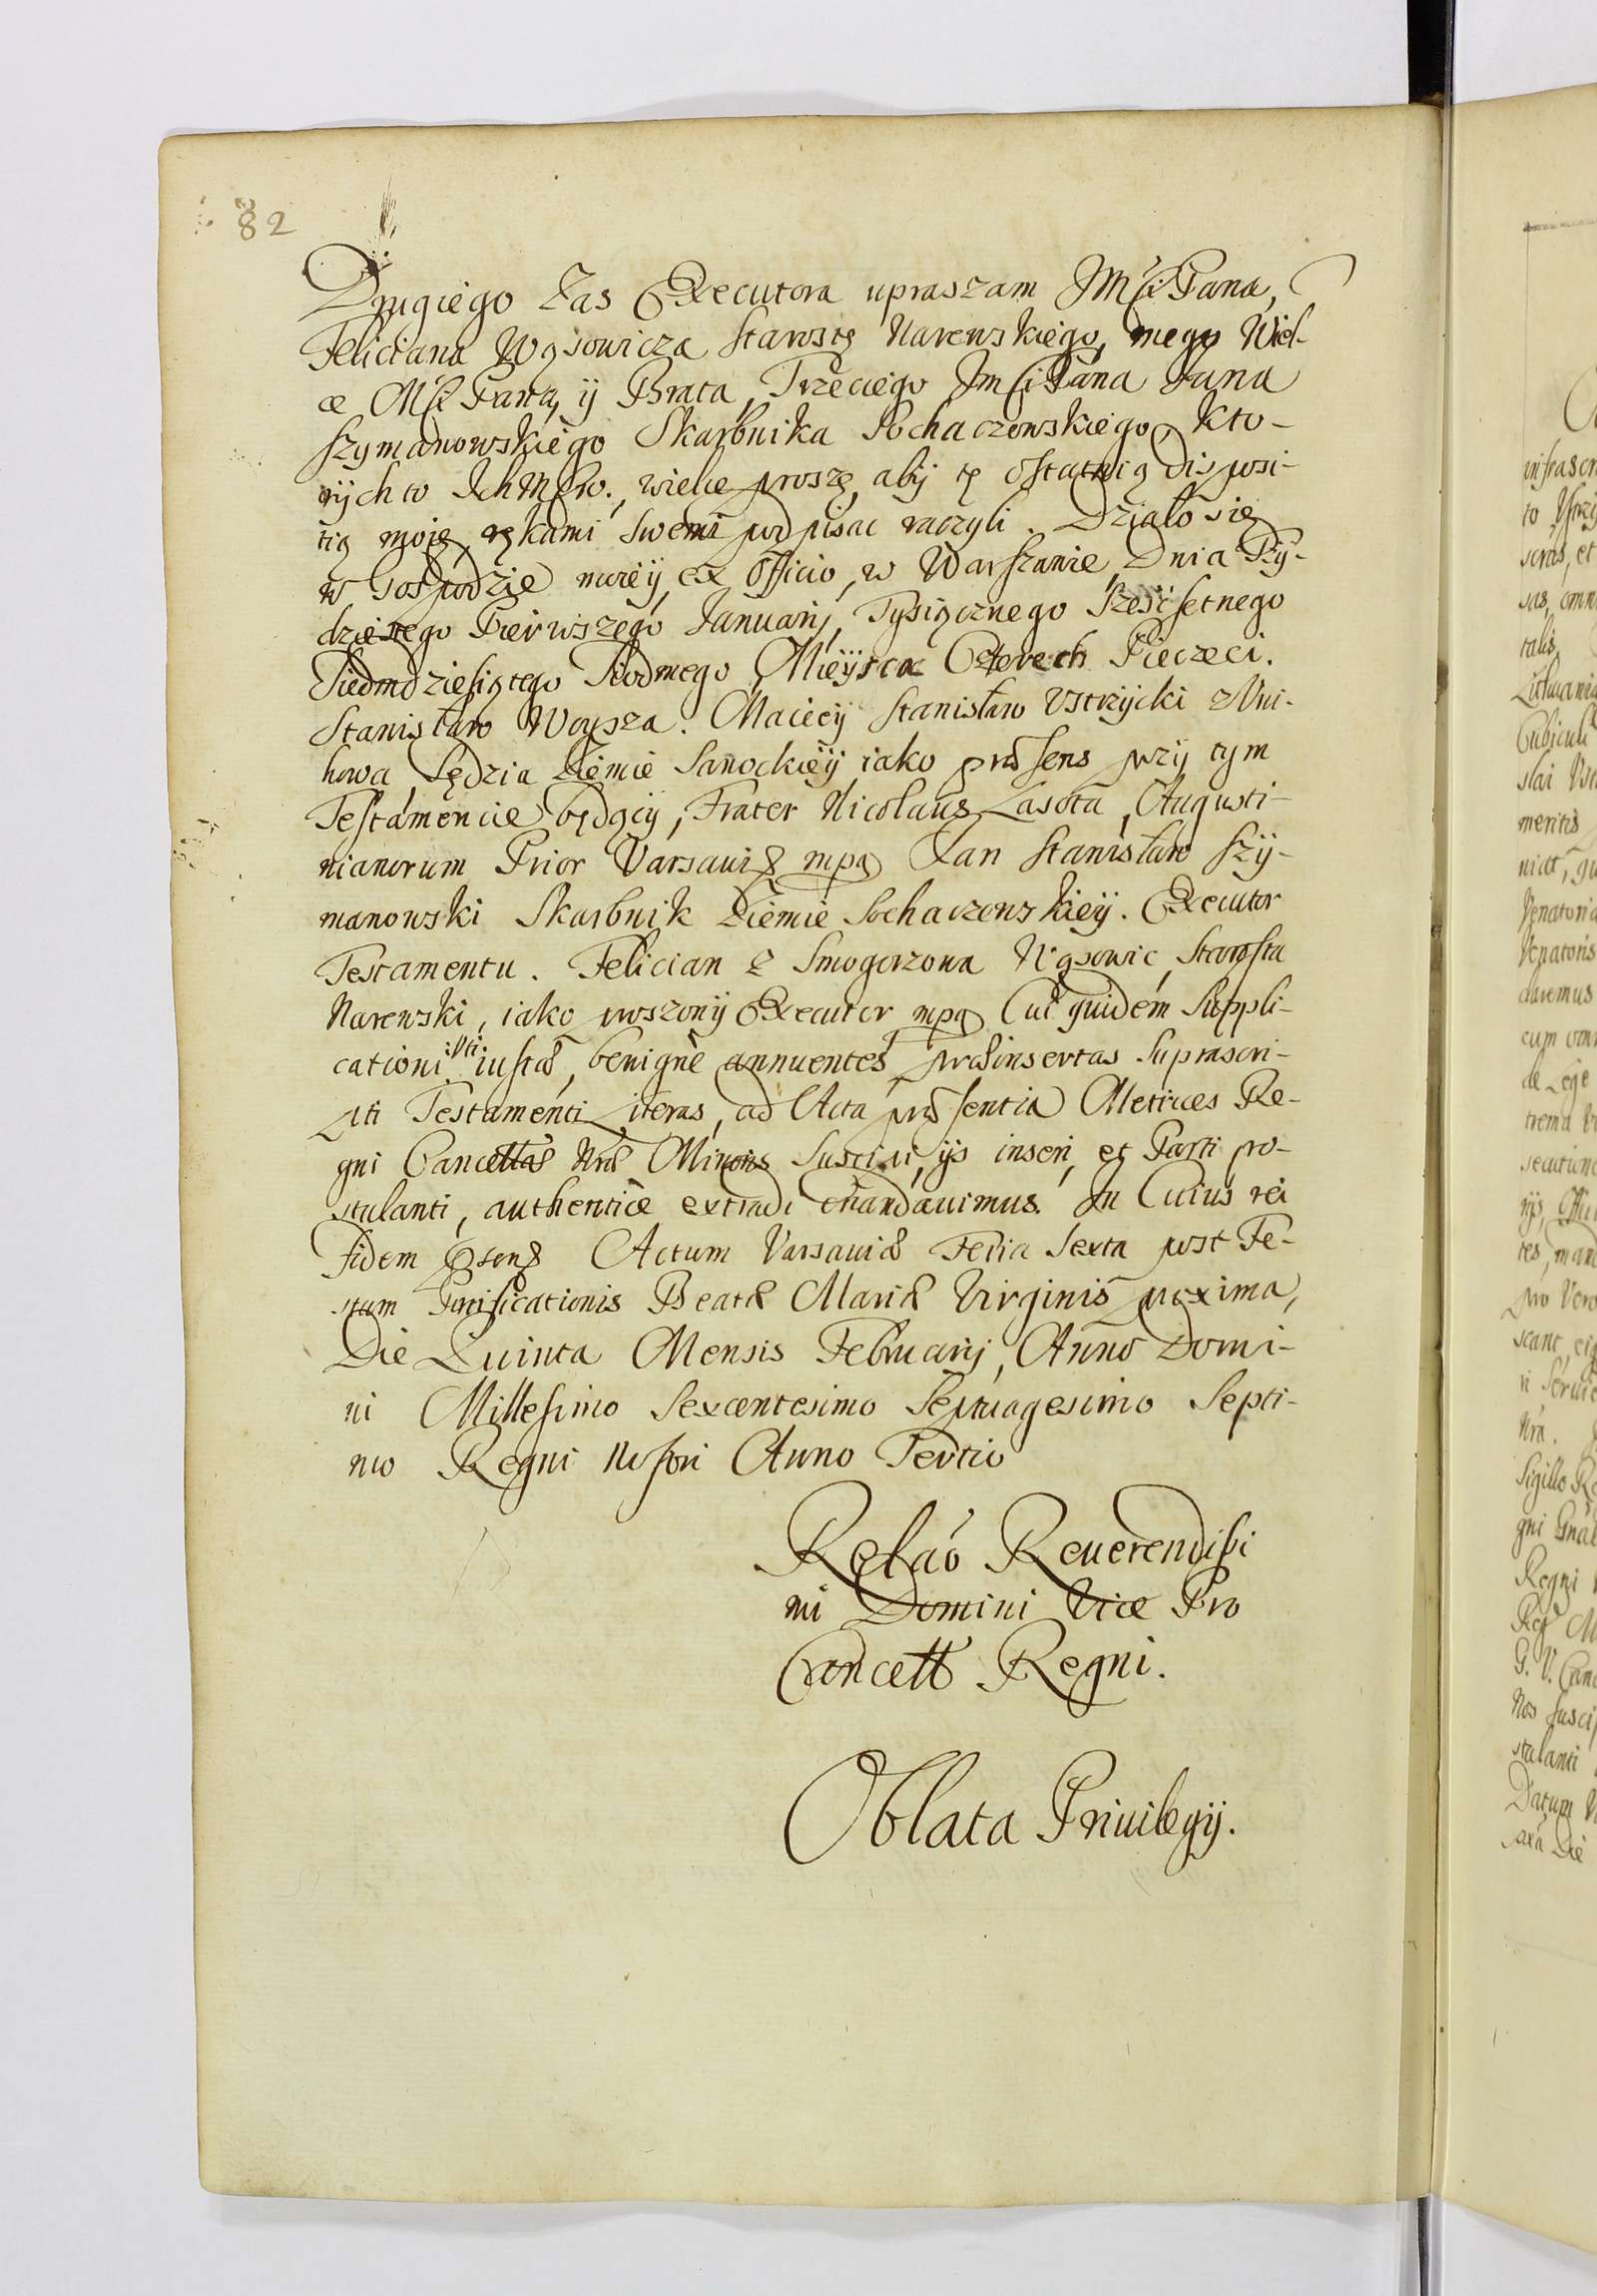 82
Drugiego zas Executora upraszam JMści Pana,
Feliciana Wąsowicza Starostę Narewskiego, mego Wiel-
ce Mści Pana, ij Brata, Trzeciego Jmści Pana Jana
Szymanowskiego Skarbnika Sochaczewskiego, kto-
rijch to IchMściow., wielce proszę, abij tę ostatnią disposi-
tią moię, rękami swemi podpisac raczyli. Działo się
w Gospodzie moieij, ex Officio, w Warszawie, Dnia Trzÿ-
dziestego Pierwszego Januarij, Tysiącznego Sześćsetnego
Siedmdziesiątego Siodmego, Mieÿsca Czterech Pieczeci.
Stanisław Woysza. Maciecÿ Stanisław Ustrzÿcki z Uni-
howa Sędzia Ziemie Sanockieÿ iako præsens przÿ tÿm
Testamencie będącÿ, Frater Nicolaus Lasota, Augusti-
nianorum Prior Varsaviæ mpa Jan Stanisław Szÿ-
manowski Skarbnik Ziemie Sochaczewskieÿ. Executor
Testamentu. Felician z Smogorzowa Wąsowic, Starosta
Narewski, iako proszonÿ Executor mpa Cui quidem Suppli-
cationi :Vti: iustæ, benignè annuentes præinsertas Suprascri-
pti Testamenti Literas, ad Acta præsentia Metrices Re-
gni Cancellæ Nræ Minoris Suscipi, ijs inseri, et Parti po-
stulanti, authenticè extradi mandavimus. In Cuius rei
fidem Actum Varsaviæ Feria Sexta post Fe-
stum Purificationis Beatæ Mariæ Virginis proxima,
Die Quinta Mensis Februarij, Anno Domi-
ni Millesimo Sexcentesimo Septuagesimo Septi-
mo Regni Nostri Anno Tertio
Relaó Reverendissi
mi Domini Vice Pro
Cancell Regni.
Oblata Privilegij.